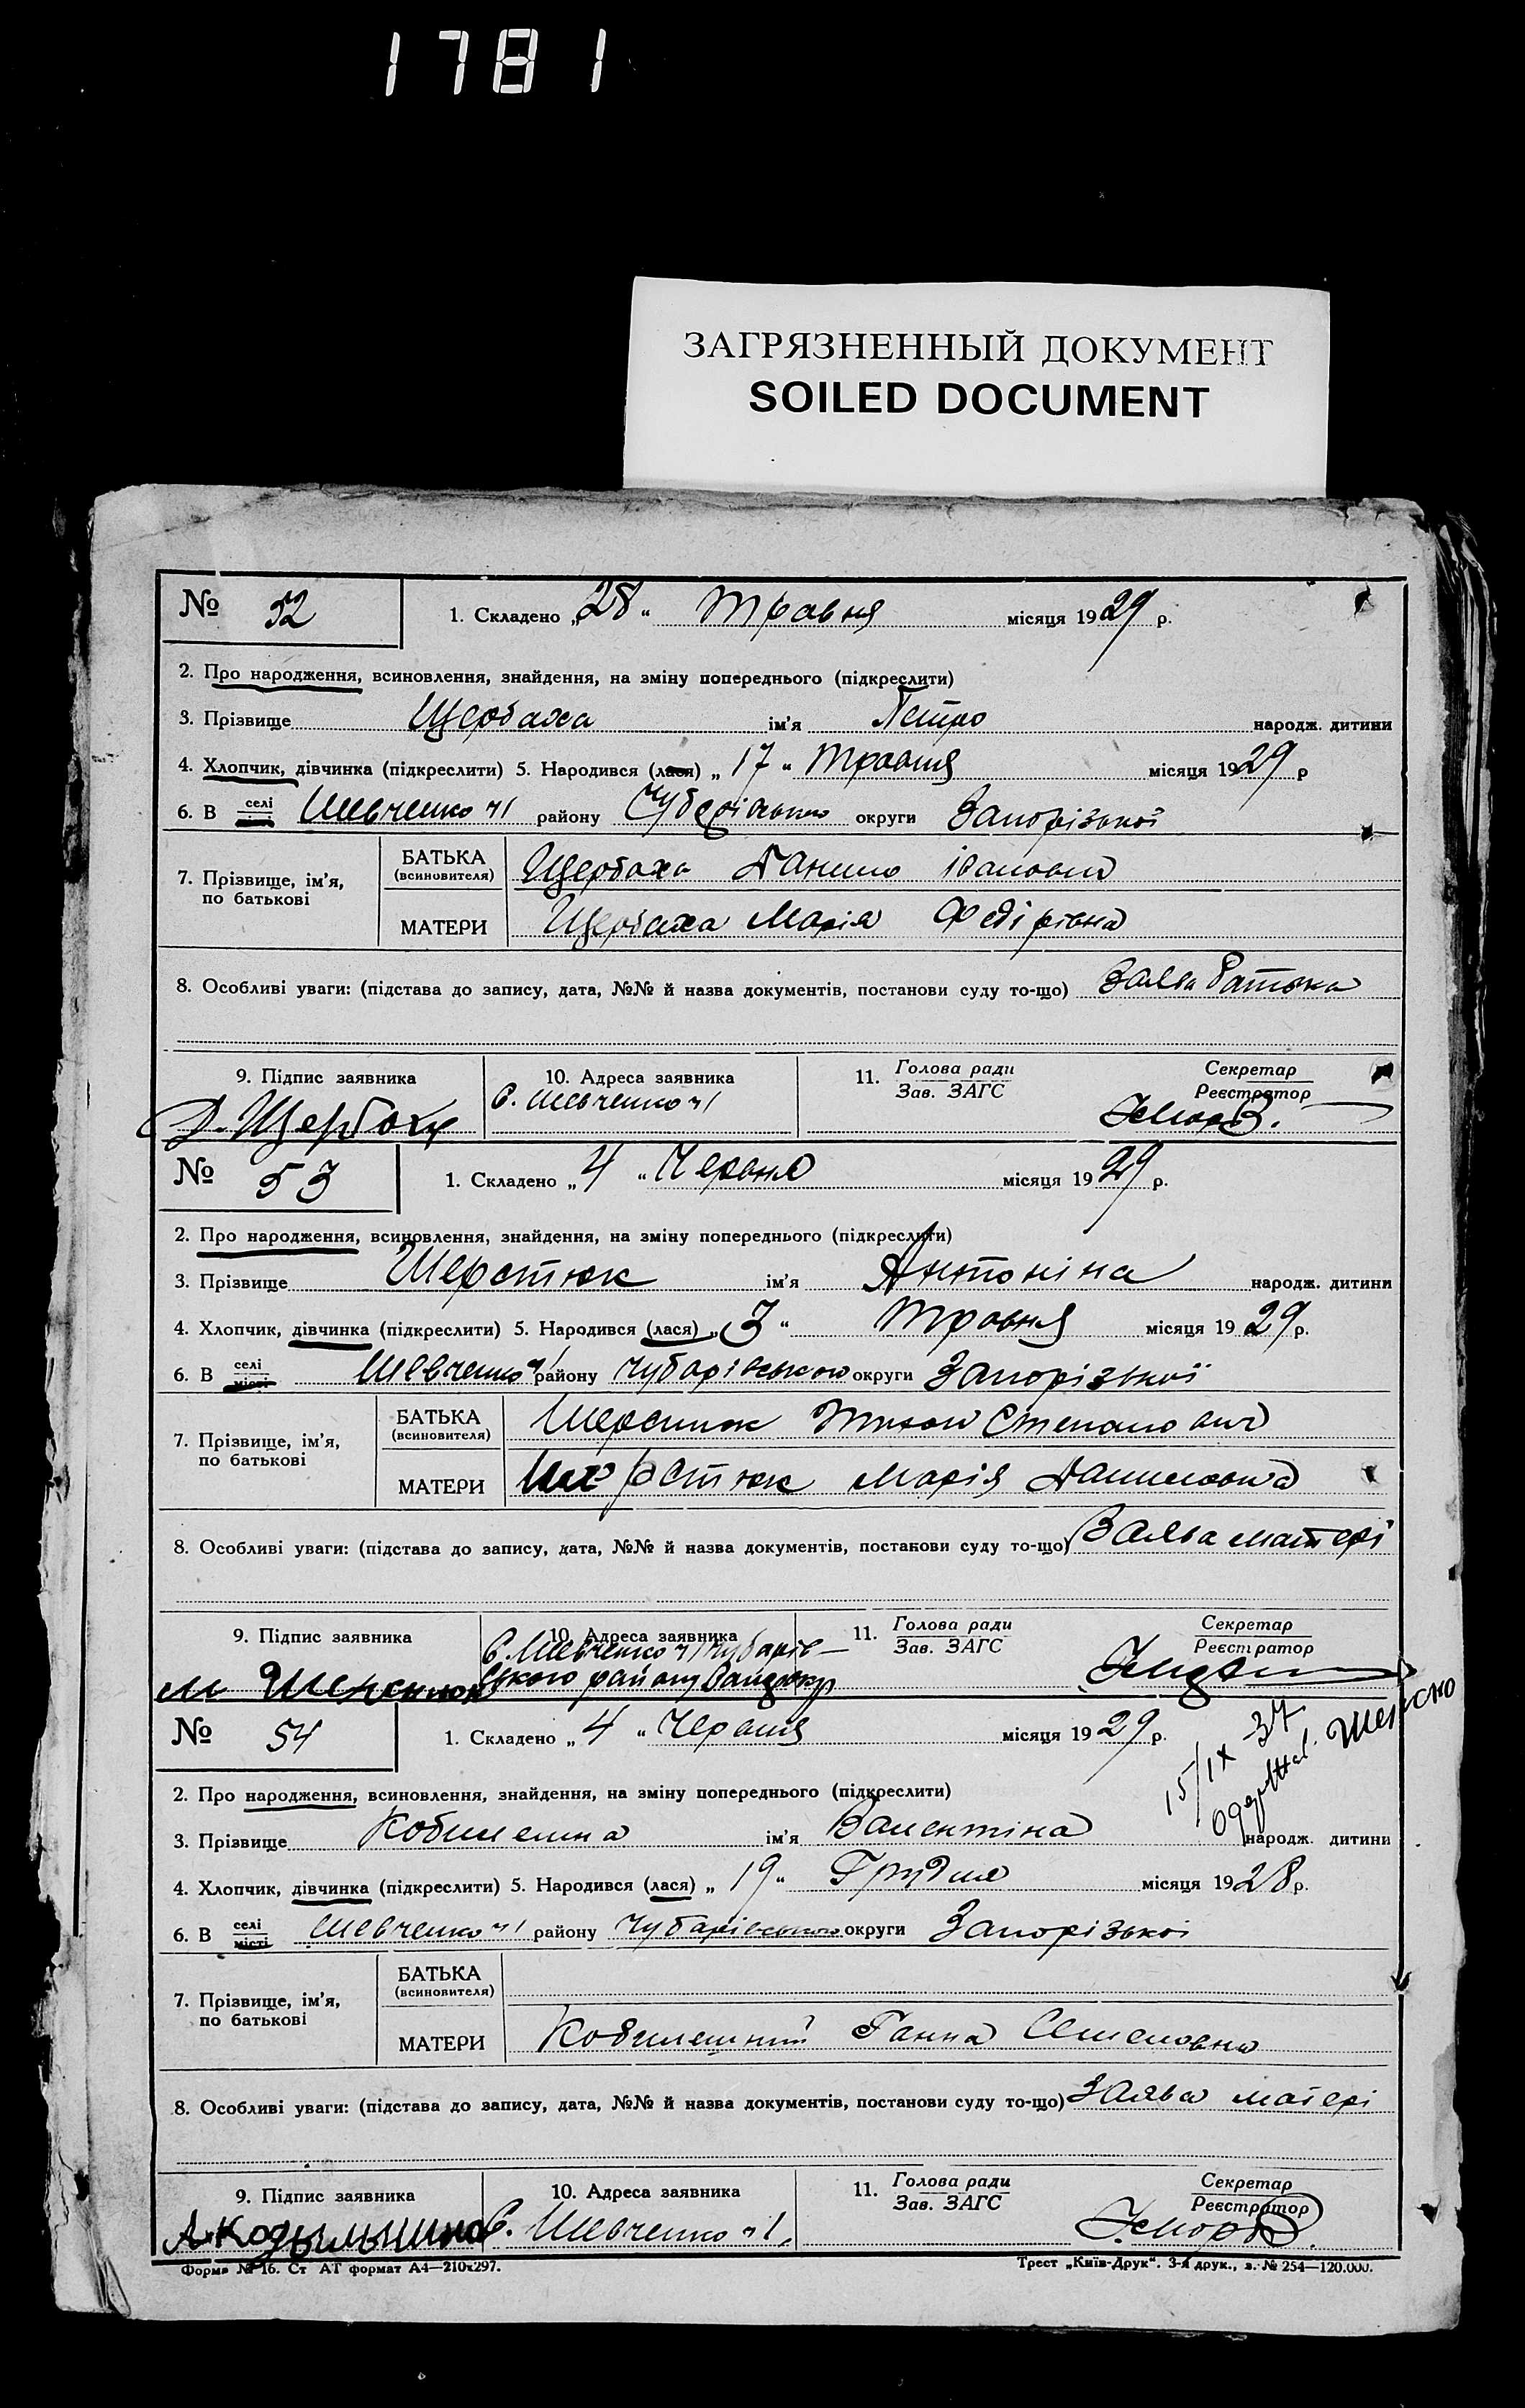 1781
ЗАГРЯЗНЕННЫЙ ДОКУМЕНТ
SOILED DOCUMENT
№ 52 1. Складено „28“ Травня місяця 1929 р.
2. Про народження, всиновлення, знайдення, на зміну попереднього (підкреслити)
3. Прізвище Щербаха ім’я Петро народж. дитини
4. Хлопчик, дівчинка (підкреслити) 5. Народився (лася) „17“ Травня місяця 1929 р
6. В селі місті Шевченко ч1 району округи Запорізької
7. Прізвище, ім’я, по батькові
БАТЬКА (всиновителя) Щербаха Данило Іванович
МАТЕРИ Щербаха Марія Федірівна
8. Особливі уваги: (підстава до запису, дата, №№ й назва документів, постанови суду то-що) Заява батька
9. Підпис заявника 10. Адреса заявника 11. Голова ради Секретар
Зав. ЗАГС Реєстратор
Д. Щербаха С. Шевченко ч1
№ 53 1. Складено „4“ Червня місяця 1929 р.
2. Про народження, всиновлення, знайдення, на зміну попереднього (підкреслити)
3. Прізвище Шерстюк ім’я Антоніна народж. дитини
4. Хлопчик, дівчинка (підкреслити) 5. Народився (лася) „3“ Травня місяця 1929 р.
6. В селі місті Шевченко ч1 району Чубарівського округи Запорізької
7. Прізвище, ім’я, по батькові
БАТЬКА (всиновителя) Шерстюк Тихон Степанович
МАТЕРИ Шерстюк Марія Даниловна
8. Особливі уваги: (підстава до запису, дата, №№ й назва документів, постанови суду то-що) Заява матері
9. Підпис заявника 10. Адреса заявника 11. Голова ради Секретар
Зав. ЗАГС Реєстратор
С. Шевченко ч1 Чубарів-
ського району
м
№ 54 1. Складено „4“ Червня місяця 1929 р.
15/IX 37
2. Про народження, всиновлення, знайдення, на зміну попереднього (підкреслити)
3. Прізвище ім’я Валентіна народж. дитини
4. Хлопчик, дівчинка (підкреслити) 5. Народився (лася) „19“ Грудня місяця 1928 р.
6. В селі місті Шевченко ч1 району Чубарівського округи Запорізької
7. Прізвище, ім’я, по батькові
БАТЬКА (всиновителя)
МАТЕРИ Ганна Семеновна
8. Особливі уваги: (підстава до запису, дата, №№ й назва документів, постанови суду то-що) Заява матері
9. Підпис заявника 10. Адреса заявника 11. Голова ради Секретар
Зав. ЗАГС Реєстратор
С. Шевченко ч1.
Форма № 16. Ст АТ формат А4—210х297. Трест „Київ-Друк“. 3-я друк., з. № 254—120.000.